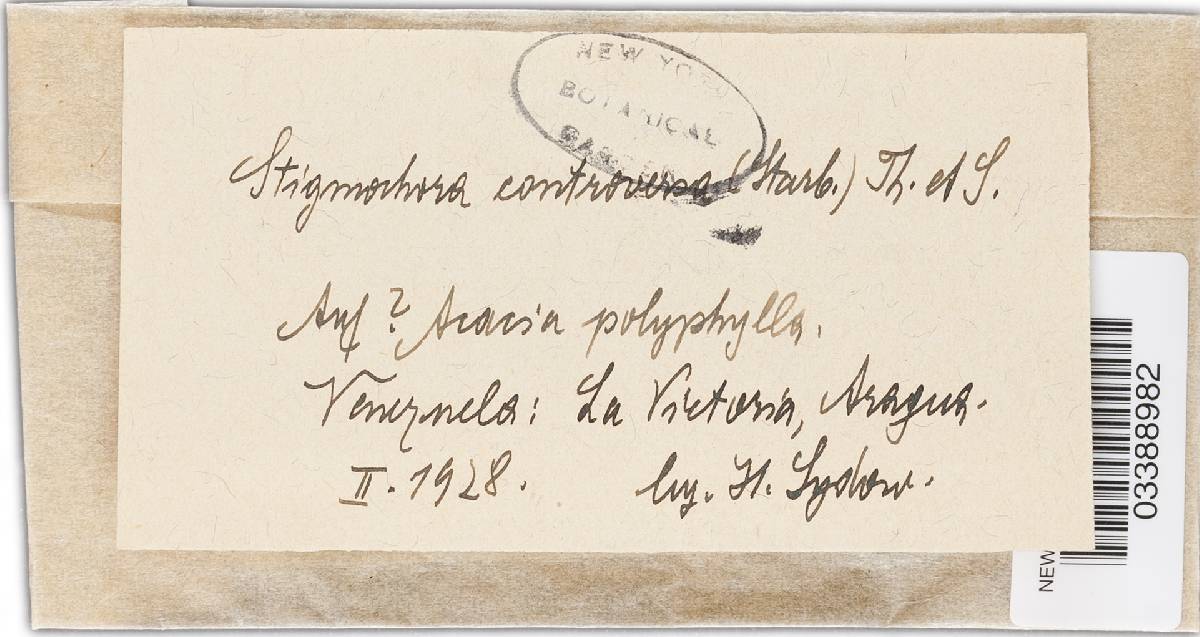 NEW YORK
BOTANICAL
GARDEN
Stigmochora controversa (Starb.) Th. et S.
Auf ? Acacia polyphylla.
Venezuela: La Victoria, Aragua.
II. 1928. leg. H. Sydow.
03388982
NEW